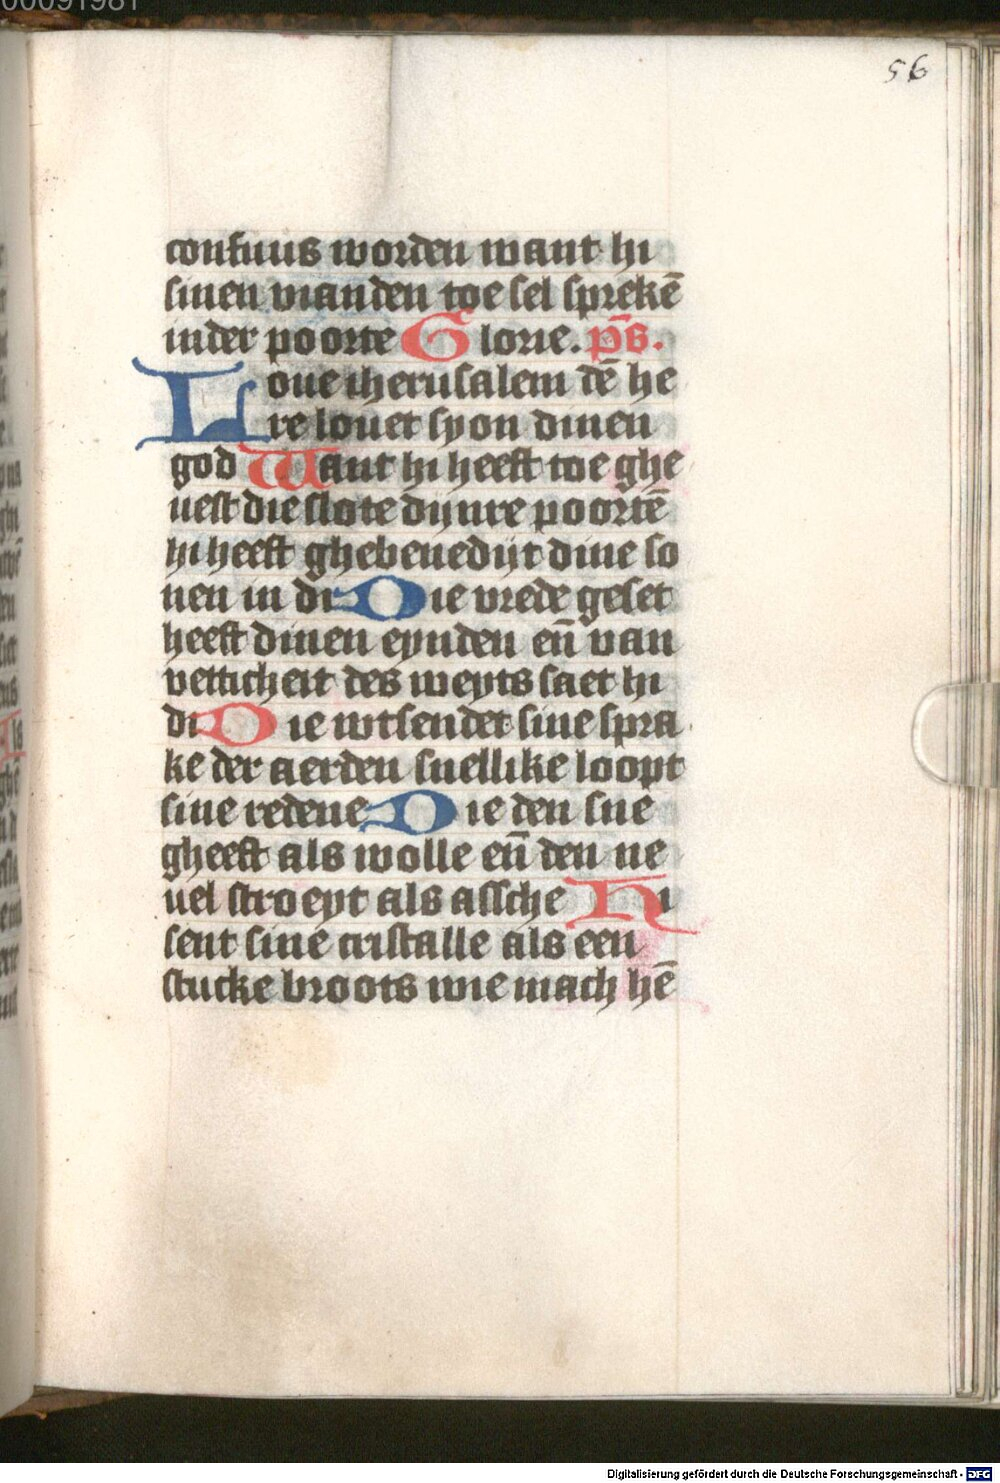 00091981
56
confuus worden want hi
sinen vianden toe sel sprekē
inder poorte Glorie. p̄s.
Loue iherusalem dē he
re louet syon dinen
god Want hi heeft toe ghe
uest die slote dijnre poortē
hi heeft ghebenedijt dine so
nen in di Die vrede geset
heeft dinen eynden en̄ van
vetticheit des weyts saet hi
di Die wtsendet sine spra
ke der aerden snellike loopt
sine redene Die den sne
gheeft als wolle en̄ den ne
uel stroeyt als assche Hi
sent sine cristalle als een
stucke broots wie mach hē
Digitalisierung gefördert durch die Deutsche Forschungsgemeinschaft - DFG